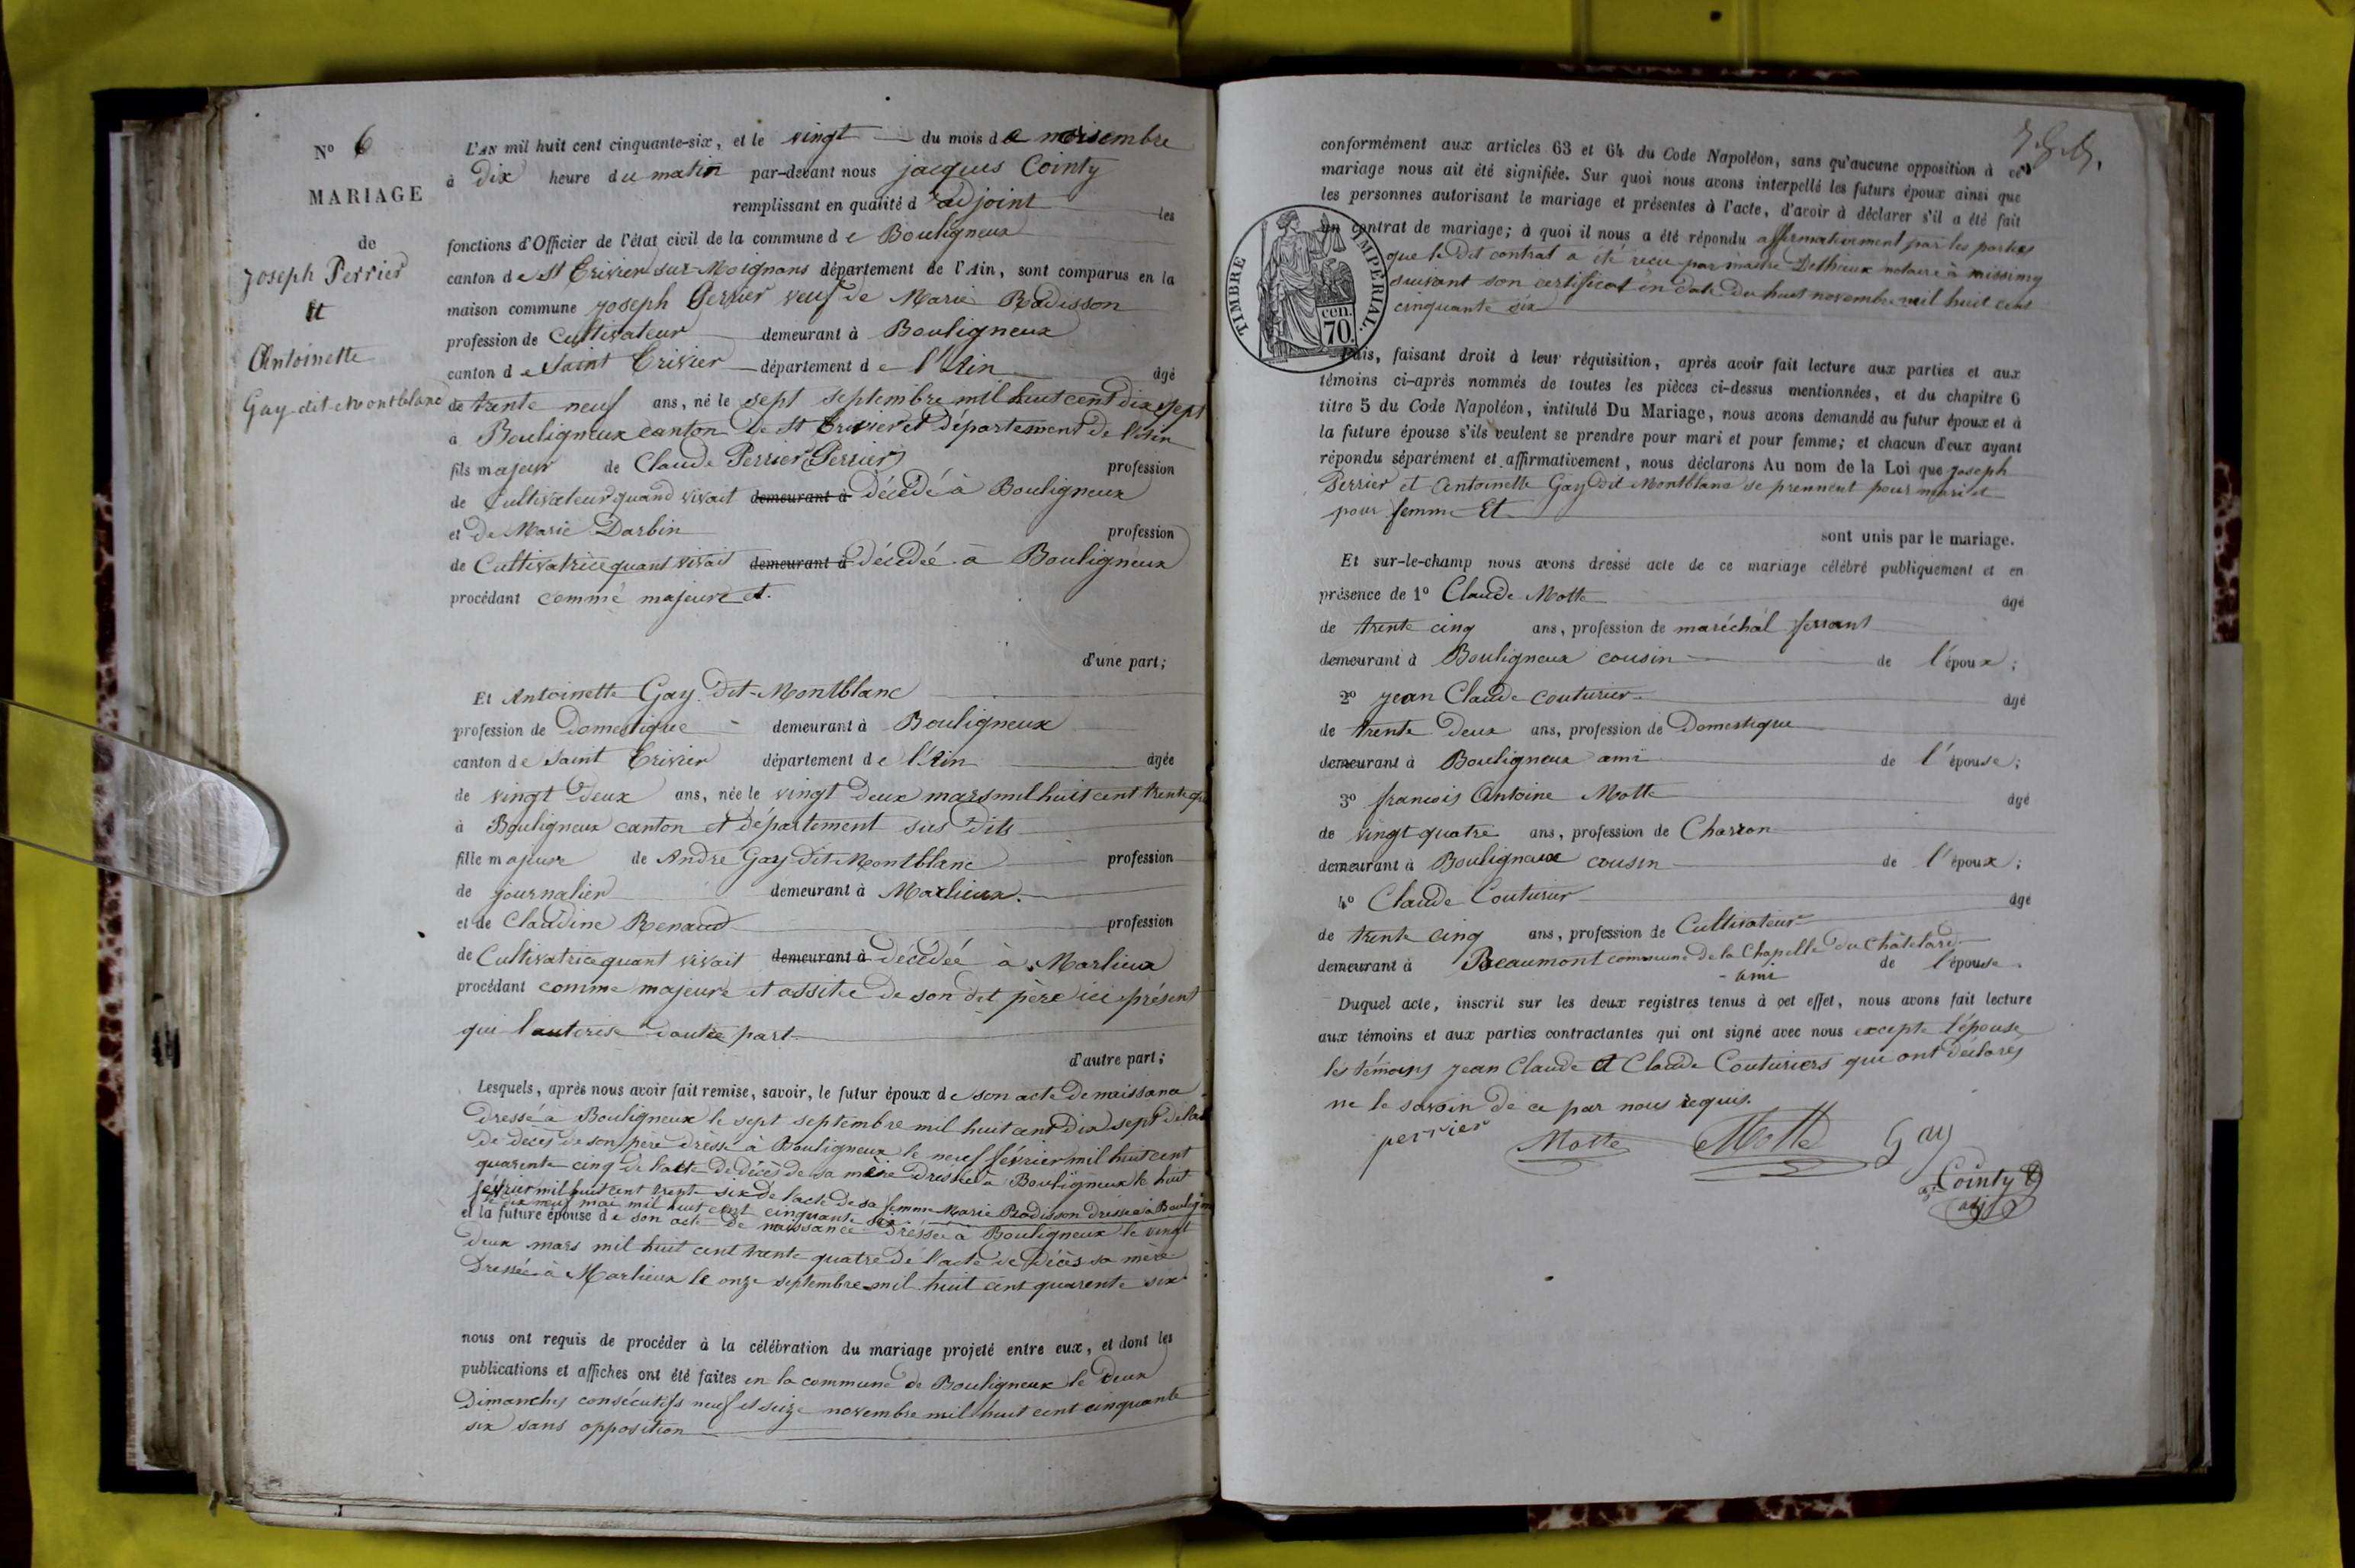 N° 6
MARIAGE
de
Joseph Perrier
et
Antoinette
Gay dit Montblanc
L'AN mil huit cent cinquante-six, et le vingt du mois de novembre
à Dix heure du matin par-devant nous jacques Cointy
remplissant en qualité d'adjoint les
fonctions d'Officier de l'état civil de la commune de Bouligneux
canton de St Trivier sur Moignans département de l'Ain, sont comparus en la
maison commune Joseph Perrier veuf de Marie Rodisson
profession de Cultivateur demeurant à Bouligneux
canton de Saint Trivier département de l'Ain âgé
de trente neuf ans, né le sept septembre mil huit cent dix sept
à Bouligneux canton de St Trivier et Département de l'Ain
fils majeur de Claude Perrier Perrier profession
de Cultivateur quand vivait demeurant à Décédé à Bouligneux
et de Marie Darbin profession
de Cultivatrice quant vivait demeurant à décédée à Bouligneux
procédant comme majeure et.
d'une part;
Et Antoinette Gay dit-Montblanc
profession de Domestique demeurant à Bouligneux
canton de Saint Trivier département de l'Ain âgée
de vingt Deux ans, née le vingt Deux mars mil huit cent trente
à Bouligneux canton et département sus dits
fille majeure de André Gay dit Montblanc profession
de journalier demeurant à Marlieux.
et de Claudine Renaud profession
de Cultivatrice quant vivait demeurant à Décédée à Marlieux
procédant comme majeure et assitée de son dit père ici présent
qui l'autorise d'autre part
d'autre part;
Lesquels, après nous avoir fait remise, savoir, le futur époux de son acte de naissance
dressé à Bouligneux le sept septembre mil huit cent Dix sept de
De Décès de son père dressé à Bouligneux le neuf février mil huit cent
quarente cinq de l'acte de Décès de sa mère Dressée à Bouligneux le huit
février mil huit cent trente six de l'acte de sa femme Marie Rodisson dressée à
le dix neuf mai mil huit cent cinquante six
et la future épouse de son acte de naissance Dressée à Bouligneux le vingt
deux mars mil huit cent trente quatre de l'acte de Décès sa mère
Dressée à Marlieux le onze septembre mil huit cent quarente six
nous ont requis de procéder à la célébration du mariage projeté entre eux, et dont les
publications et affiches ont été faites en la commune de Bouligneux le Deux
Dimanches consécutifs neuf et seize novembre mil huit cent cinquante
six sans opposition
conformément aux articles 63 et 64 du Code Napoléon, sans qu'aucune opposition à ce
mariage nous ait été signifiée. Sur quoi nous avons interpellé les futurs époux ainsi que
les personnes autorisant le mariage et présentes à l'acte, d'avoir à déclarer s'il a été fait
un contrat de mariage; à quoi il nous a été répondu affirmativement par les parties
que le dit contrat a été reçu par maitre Dethieux notaire à missimy
suivant son certificat en date du huit novembre mil huit cent
cinquante six
TIMBRE IMPÉRIAL.
cen. 70.
Puis, faisant droit à leur réquisition, après avoir fait lecture aux parties et aux
témoins ci-après nommés de toutes les pièces ci-dessus mentionnées, et du chapitre 6
titre 5 du Code Napoléon, intitulé Du Mariage, nous avons demandé au futur époux et à
la future épouse s'ils veulent se prendre pour mari et pour femme; et chacun d'eux ayant
répondu séparément et affirmativement, nous déclarons Au nom de la Loi que Joseph
Perrier et Antoinette Gay dit Montblanc se prennent pour mari et
pour femme Et
sont unis par le mariage.
Et sur-le-champ nous avons dressé acte de ce mariage célébré publiquement et en
présence de 1° Claude Motte âgé
de trente cinq ans, profession de maréchal ferrant
demeurant à Bouligneux cousin de l'époux;
2° jean Claude couturier âgé
de trente Deux ans, profession de Domestique
demeurant à Bouligneux ami de l'épouse;
3° francois Antoine Motte âgé
de vingt quatre ans, profession de Charron
demeurant à Bouligneux cousin de l'époux;
4° Claude Couturier âgé
de trente cinq ans, profession de Cultivateur
demeurant à Beaumont commune de la Chapelle du Châtelard de l'épouse.
- ami
Duquel acte, inscrit sur les deux registres tenus à cet effet, nous avons fait lecture
aux témoins et aux parties contractantes qui ont signé avec nous excepte l'épouse
les témoins jean Claude et Claude Couturiers qui ont déclarés
ne le savoir de ce par nous requis.
perrier Motte Motte Gay
Cointy
adj